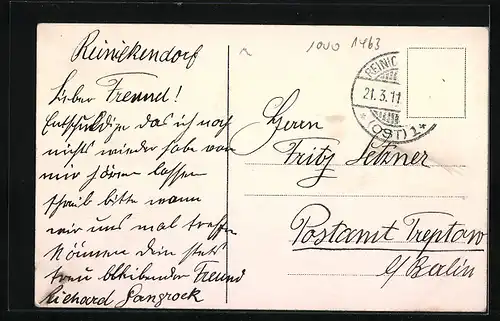 Reinickendorf
Lieber Freund!
Entschuldige das ich noch
nichts wieder habe von
mir hören lassen
schreib bitte wann
wir uns mal treffen
können dein stets
treu bleibender Freund
Richard Langrock
1000 1463
REINIC
21.3.11
* (OST) 1 *
Herrn
Fritz
Postamt Treptow
b/Berlin